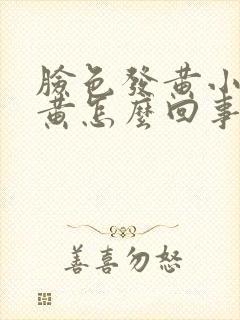 臉色發黃小
黃怎麼回事
善喜勿怒